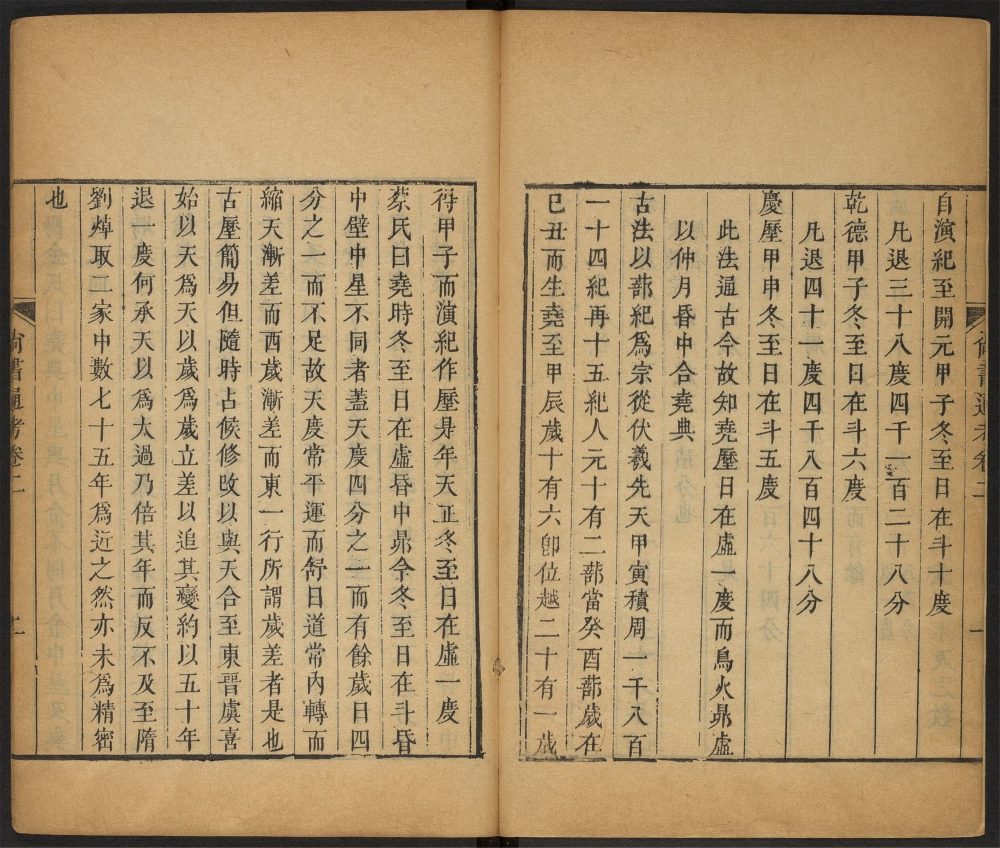 尚書通考卷二
一
自演紀至開元甲子冬至日在斗十度
凡退三十八度四千一百二十八分
乾德甲子冬至日在斗六度
凡退四十一度四千八百四十八分
慶歷甲申冬至日在斗五度
此法通古今故知堯歷日在虛一度而鳥火昴虛
以仲月昏中合堯典
古法以蔀紀為宗從伏羲先天甲寅積周一千八百
一十四紀再十五紀人元十有二蔀當癸酉蔀歲在
己丑而生堯至甲辰歲十有六卽位越二十有一歲
得甲子而演紀作歷是年天正冬至日在虛一度
蔡氏曰堯時冬至日在虛昏中昴今冬至日在斗昏
中壁中星不同者蓋天度四分之一而有餘歲日四
分之一而不足故天度常平運而舒日道常內轉而
縮天漸差而西歲漸差而東一行所謂歲差者是也
古歷簡易但隨時占候修攺以與天合至東晉虞喜
始以天爲天以歲爲歲立差以追其變約以五十年
退一度何承天以爲太過乃倍其年而反不及至隋
劉焯取二家中數七十五年爲近之然亦未爲精密
也
尚書通考卷二